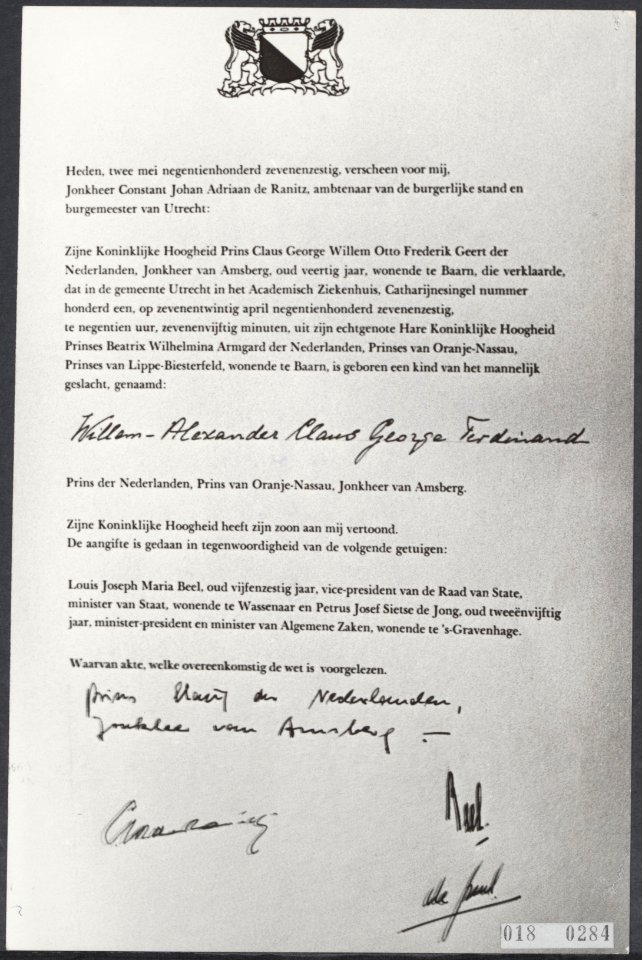 Heden, twee mei negentienhonderd zevenenzestig, verscheen voor mij,
Jonkheer Constant Johan Adriaan de Ranitz, ambtenaar van de burgerlijke stand en
burgemeester van Utrecht:
Zijne Koninklijke Hoogheid Prins Claus George Willem Otto Frederik Geert der
Nederlanden, Jonkheer van Amsberg, oud veertig jaar, wonende te Baarn, die verklaarde,
dat in de gemeente Utrecht in het Academisch Ziekenhuis, Catharijnesingel nummer
honderd een, op zevenentwintig april negentienhonderd zevenenzestig,
te negentien uur, zevenenvijftig minuten, uit zijn echtgenote Hare Koninklijke Hoogheid
Prinses Beatrix Wilhelmina Armgard der Nederlanden, Prinses van Oranje-Nassau,
Prinses van Lippe-Biesterfeld, wonende te Baarn, is geboren een kind van het mannelijk
geslacht, genaamd:
Willem-Alexander Claus George Ferdinand
Prins der Nederlanden, Prins van Oranje-Nassau, Jonkheer van Amsberg.
Zijne Koninklijke Hoogheid heeft zijn zoon aan mij vertoond.
De aangifte is gedaan in tegenwoordigheid van de volgende getuigen:
Louis Joseph Maria Beel, oud vijfenzestig jaar, vice-president van de Raad van State,
minister van Staat, wonende te Wassenaar en Petrus Josef Sietse de Jong, oud tweeënvijftig
jaar, minister-president en minister van Algemene Zaken, wonende te 's-Gravenhage.
Waarvan akte, welke overeenkomstig de wet is voorgelezen.
prins Claus der Nederlanden,
Jonkheer van Amsberg —
Beel.
018 0284